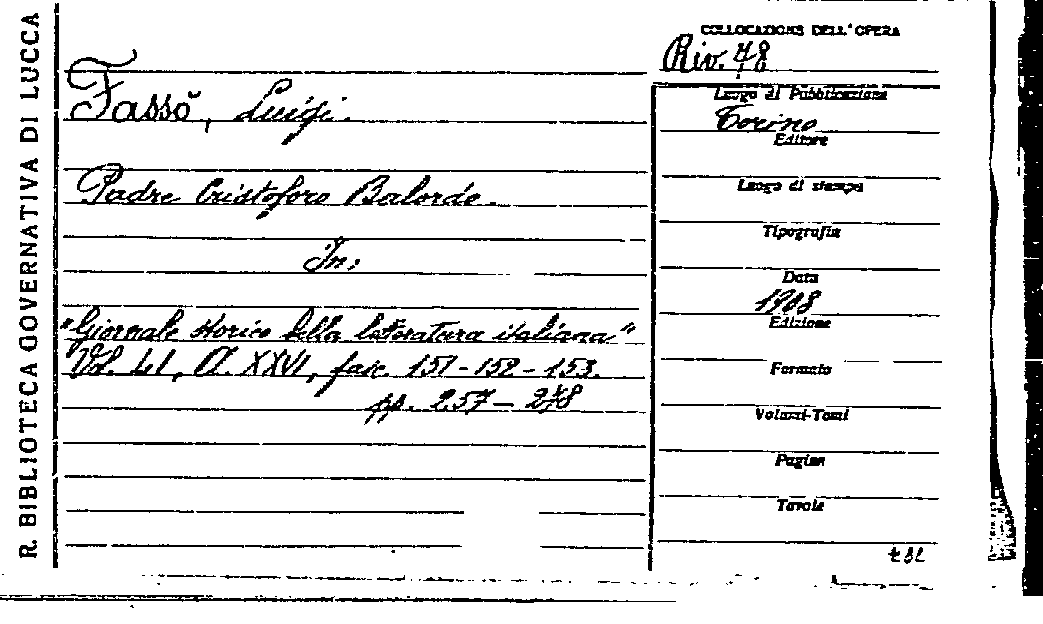 R. BIBLIOTECA GOVERNATIVA DI LUCCA
Fassò, Luigi.
Padre Cristoforo Balordo.
In:
"Giornale storico della letteratura italiana"
Vol. LI, A. XXVI, fasc. 151-152-153.
pp. 257-278
COLLOCAZIONE DELL'OPERA
Riv. 78
Luogo di Pubblicazione
Torino
Editore
Luogo di stampa
Tipografia
Data
1908
Edizione
Formato
Volumi-Tomi
Pagine
Tavole